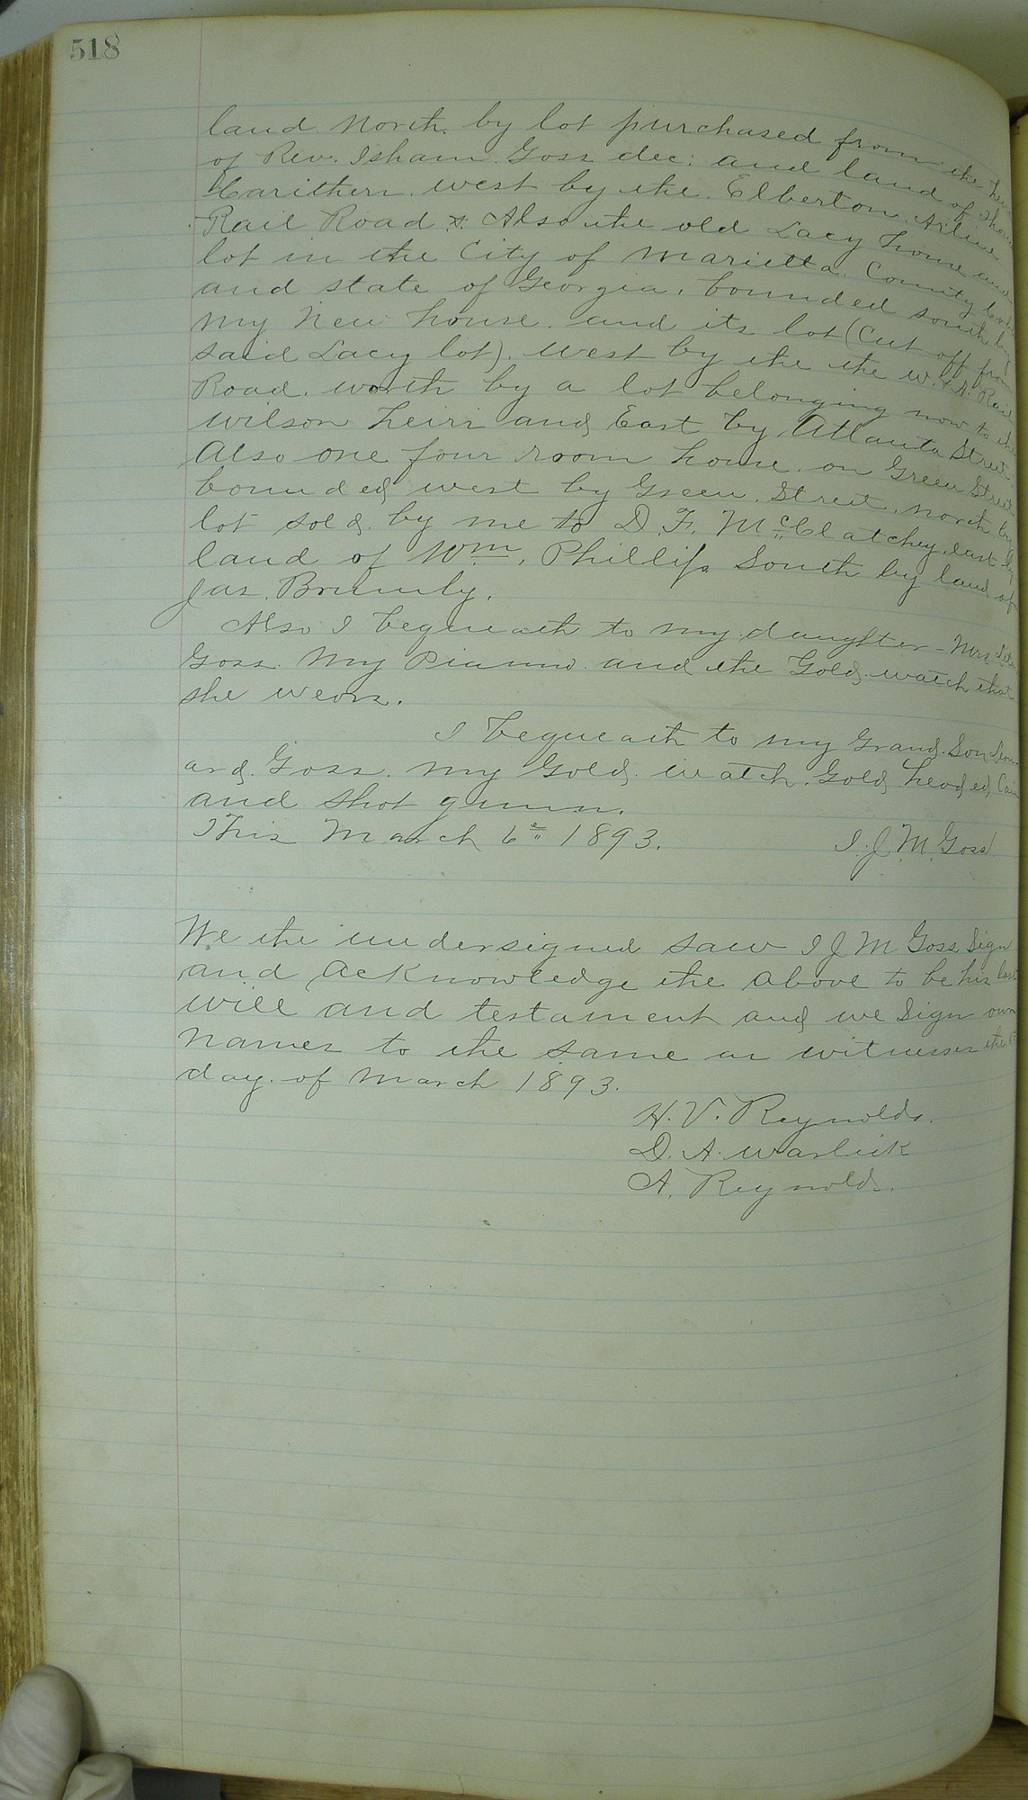 518
land North. by lot purchased from the
of Rev. Isham Goss dec: and land of
Carithers. west by the Elberton Airline
Rail Road &. Also the old Lacy house and
lot in the City of Marietta. County
and state of Georgia. bounded south by
my New house. and its lot (cut off from
said Lacy lot). West by the the W. & A. Rail
Road. north by a lot belonging now to the
wilson heirs and East by Atlanta Street.
Also one four room house. on Green Street
bounded west by Green. Street. north by
lot sold by me to D. F. McClatchey. east by
land of Wm. Phillips South by land of
Jas. Brumby.
Also I bequeath to my daughter - Mrs
Goss. My Pianno and the Gold watch that
she wears.
I bequeath to my Grand Son
ard. Goss. my Gold watch. Gold headed Cain
and shot gunn.
This March 6th 1893. I. J. M. Goss
We the undersigned saw I J M Goss Sign
and acknowledge the above to be his last
will and testament and we Sign own
names to the same as witnesses the
day of March 1893.
H. V. Reynolds.
D. A. Warlick
A. Reynolds.